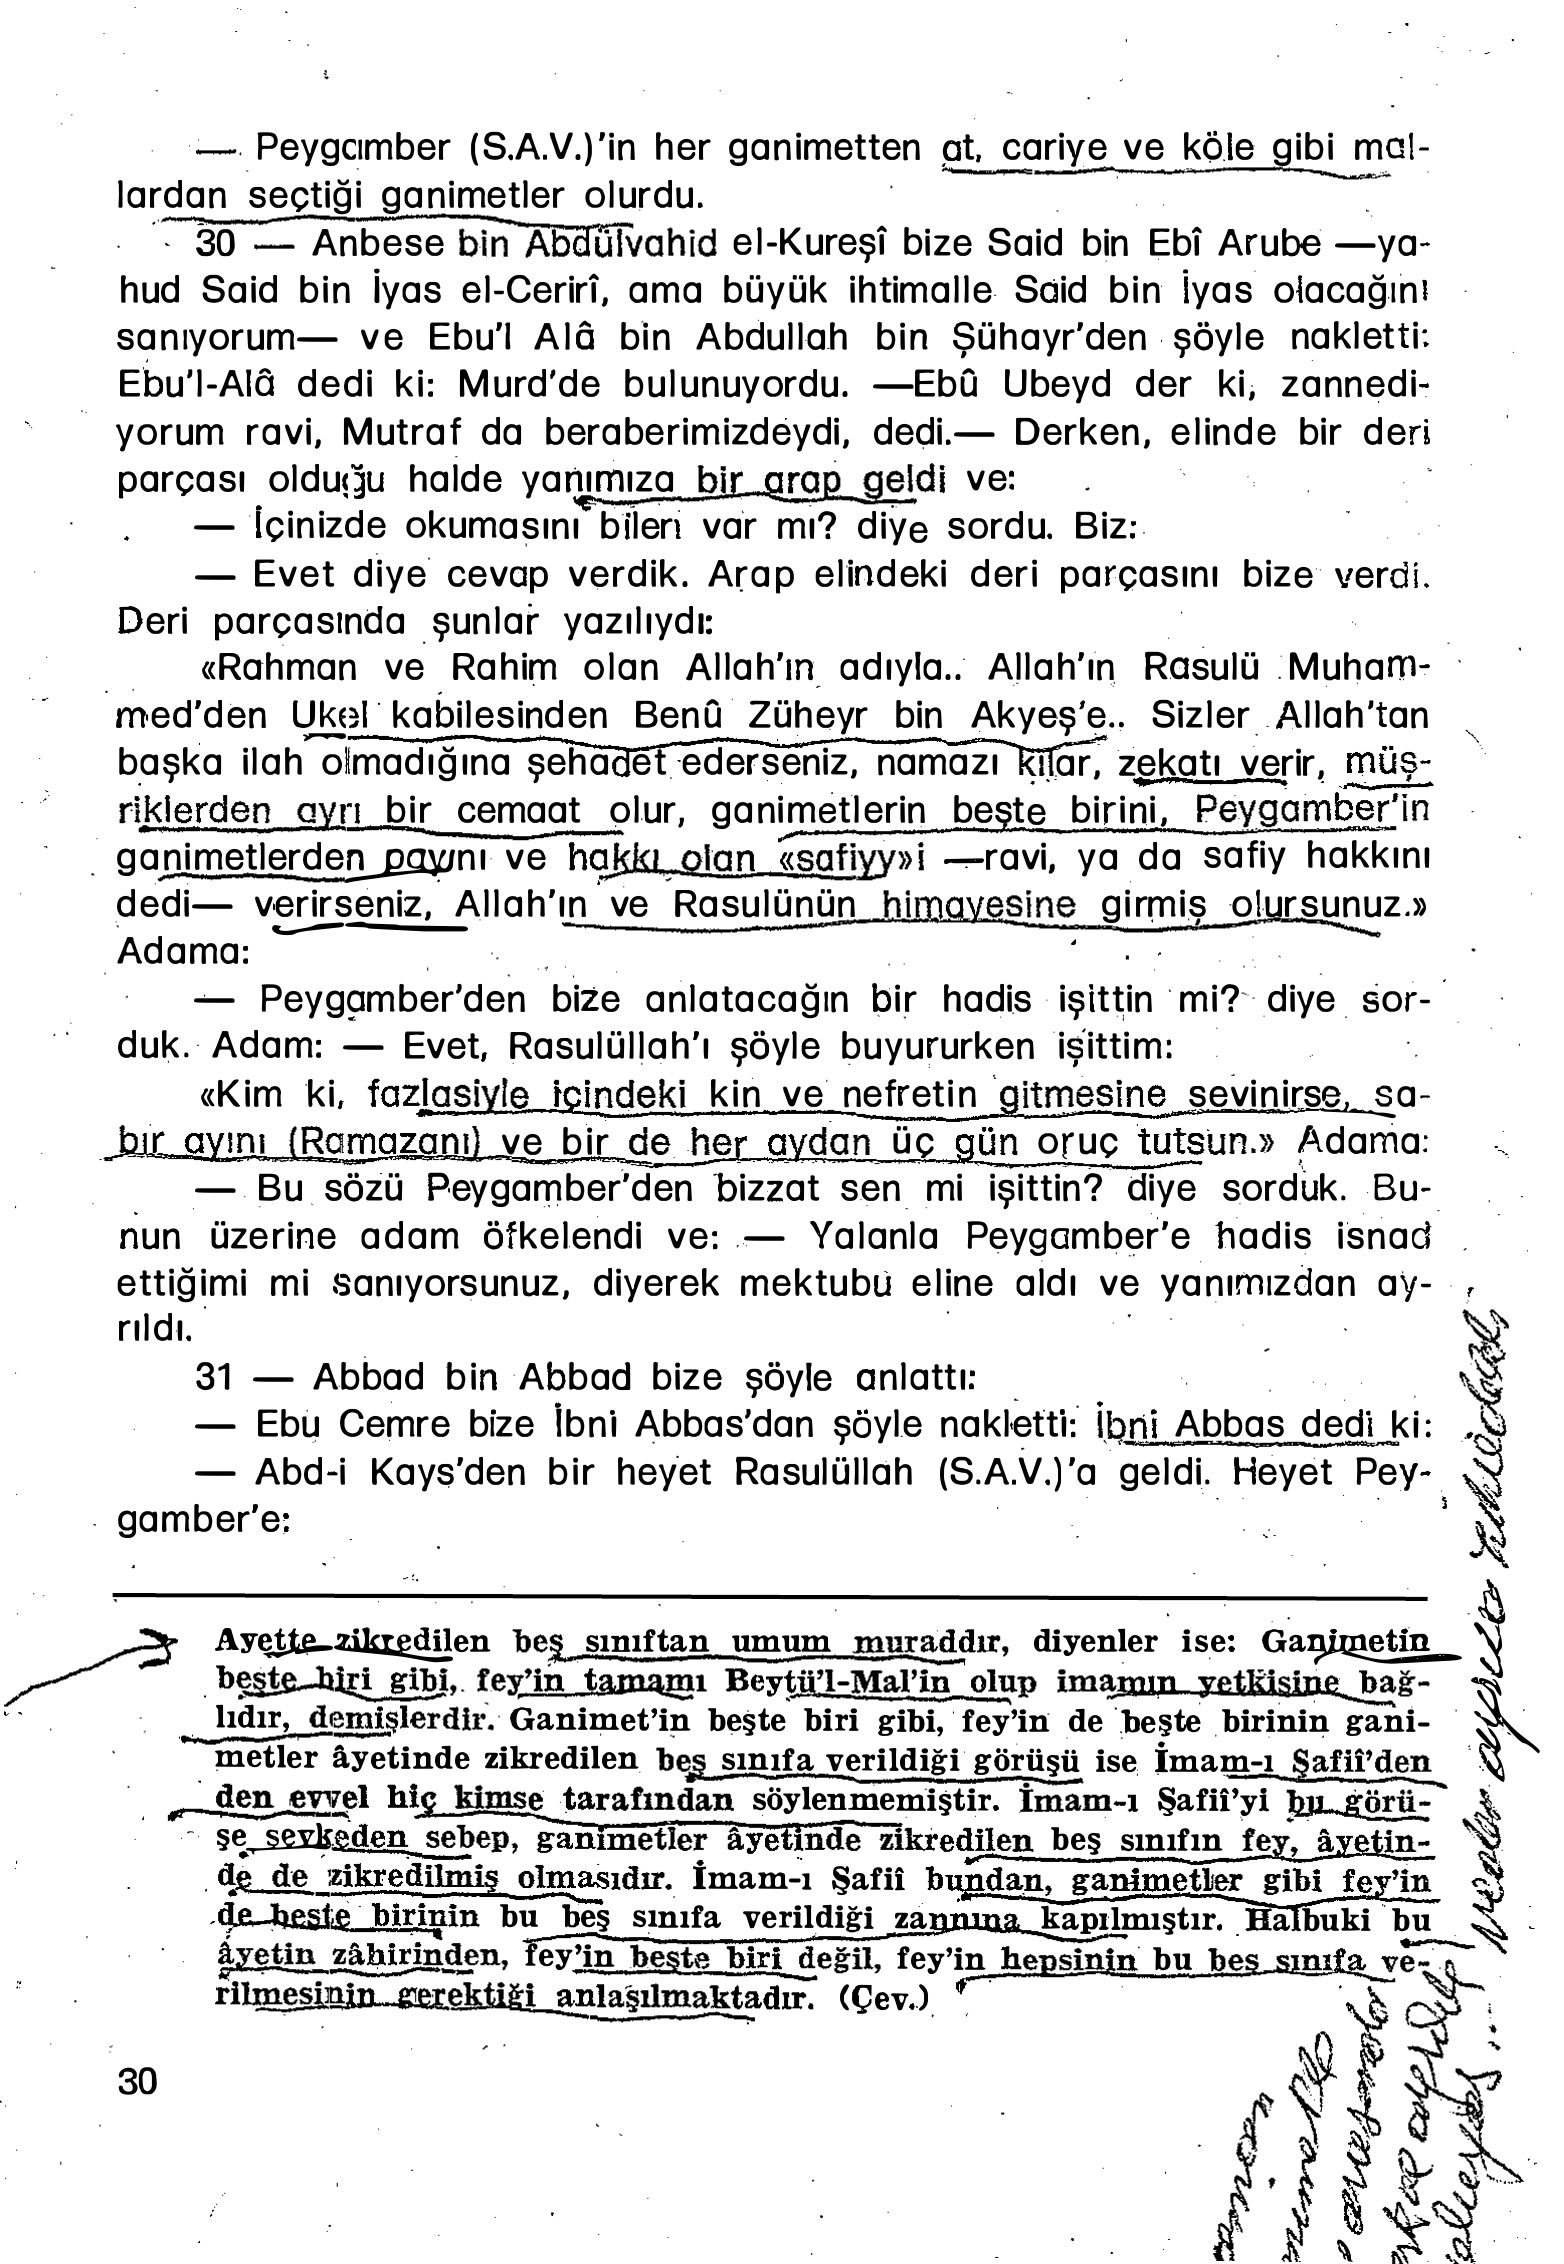 — Peygamber (S.A.V.)'in her ganimetten at, cariye ve köle gibi mal-
lardan seçtiği ganimetler olurdu.
30 — Anbese bin Abdülvahid el-Kureşî bize Said bin Ebî Arube —ya-
hud Said bin İyas el-Cerirî, ama büyük ihtimalle Said bin İyas olacağını
sanıyorum— ve Ebu'l Alâ bin Abdullah bin Şühayr'den şöyle nakletti:
Ebu'l-Alâ dedi ki: Murd'de bulunuyordu. —Ebû Ubeyd der ki, zannedi-
yorum ravi, Mutraf da beraberimizdeydi, dedi.— Derken, elinde bir deri
parçası olduğu halde yanımıza bir arap geldi ve:
— İçinizde okumasını bilen var mı? diye sordu. Biz:
— Evet diye cevap verdik. Arap elindeki deri parçasını bize verdi.
Deri parçasında şunlar yazılıydı:
«Rahman ve Rahim olan Allah'ın adıyla.. Allah'ın Rasulü Muham-
med'den Ukel kabilesinden Benû Züheyr bin Akyeş'e.. Sizler Allah'tan
başka ilah olmadığına şehadet ederseniz, namazı kılar, zekatı verir, müş-
riklerden ayrı bir cemaat olur, ganimetlerin beşte birini, Peygamber'in
ganimetlerden payını ve hakkı olan «safiyy»i —ravi, ya da safiy hakkını
dedi— verirseniz, Allah'ın ve Rasulünün himayesine girmiş olursunuz.»
Adama:
— Peygamber'den bize anlatacağın bir hadis işittin mi? diye sor-
duk. Adam: — Evet, Rasulüllah'ı şöyle buyururken işittim:
«Kim ki, fazlasiyle içindeki kin ve nefretin gitmesine sevinirse, sa-
bır ayını (Ramazanı) ve bir de her aydan üç gün oruç tutsun.» Adama:
— Bu sözü Peygamber'den bizzat sen mi işittin? diye sorduk. Bu-
nun üzerine adam öfkelendi ve: — Yalanla Peygamber'e hadis isnad
ettiğimi mi sanıyorsunuz, diyerek mektubu eline aldı ve yanımızdan ay-
rıldı.
31 — Abbad bin Abbad bize şöyle anlattı:
— Ebu Cemre bize İbni Abbas'dan şöyle nakletti: İbni Abbas dedi ki:
— Abd-i Kays'den bir heyet Rasulüllah (S.A.V.)'a geldi. Heyet Pey-
gamber'e:
Ayette zikredilen beş sınıftan umum muraddır, diyenler ise: Ganimetin
beşte biri gibi, fey'in tamamı Beytü'l-Mal'in olup imamın yetkisine bağ-
lıdır, demişlerdir. Ganimet'in beşte biri gibi, fey'in de beşte birinin gani-
metler âyetinde zikredilen beş sınıfa verildiği görüşü ise İmam-ı Şafiî'den
den evvel hiç kimse tarafından söylenmemiştir. İmam-ı Şafiî'yi bu görü-
şe sevkeden sebep, ganimetler âyetinde zikredilen beş sınıfın fey, âyetin-
de de zikredilmiş olmasıdır. İmam-ı Şafiî bundan, ganimetler gibi fey'in
de beşte birinin bu beş sınıfa verildiği zannına kapılmıştır. Halbuki bu
âyetin zâhirinden, fey'in beşte biri değil, fey'in hepsinin bu beş sınıfa ve-
rilmesinin gerektiği anlaşılmaktadır. (Çev.)
30